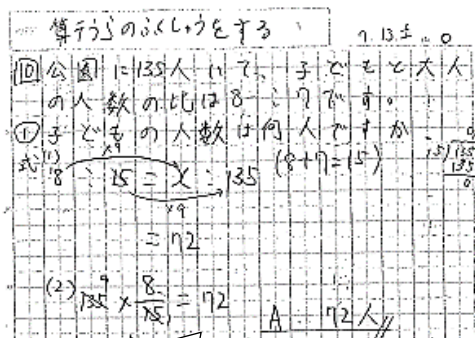 算テうらのふくしゅうをする
7.13.土
10 公園に135人いて、子どもと大人
の人数の比は8:7です。
① 子どもの人数は何人ですか。
式(1) 8:15=x:135 (8+7=15)
×9
×9
=72
15)135
135
0
(2) 135×8/15=72
A 72人